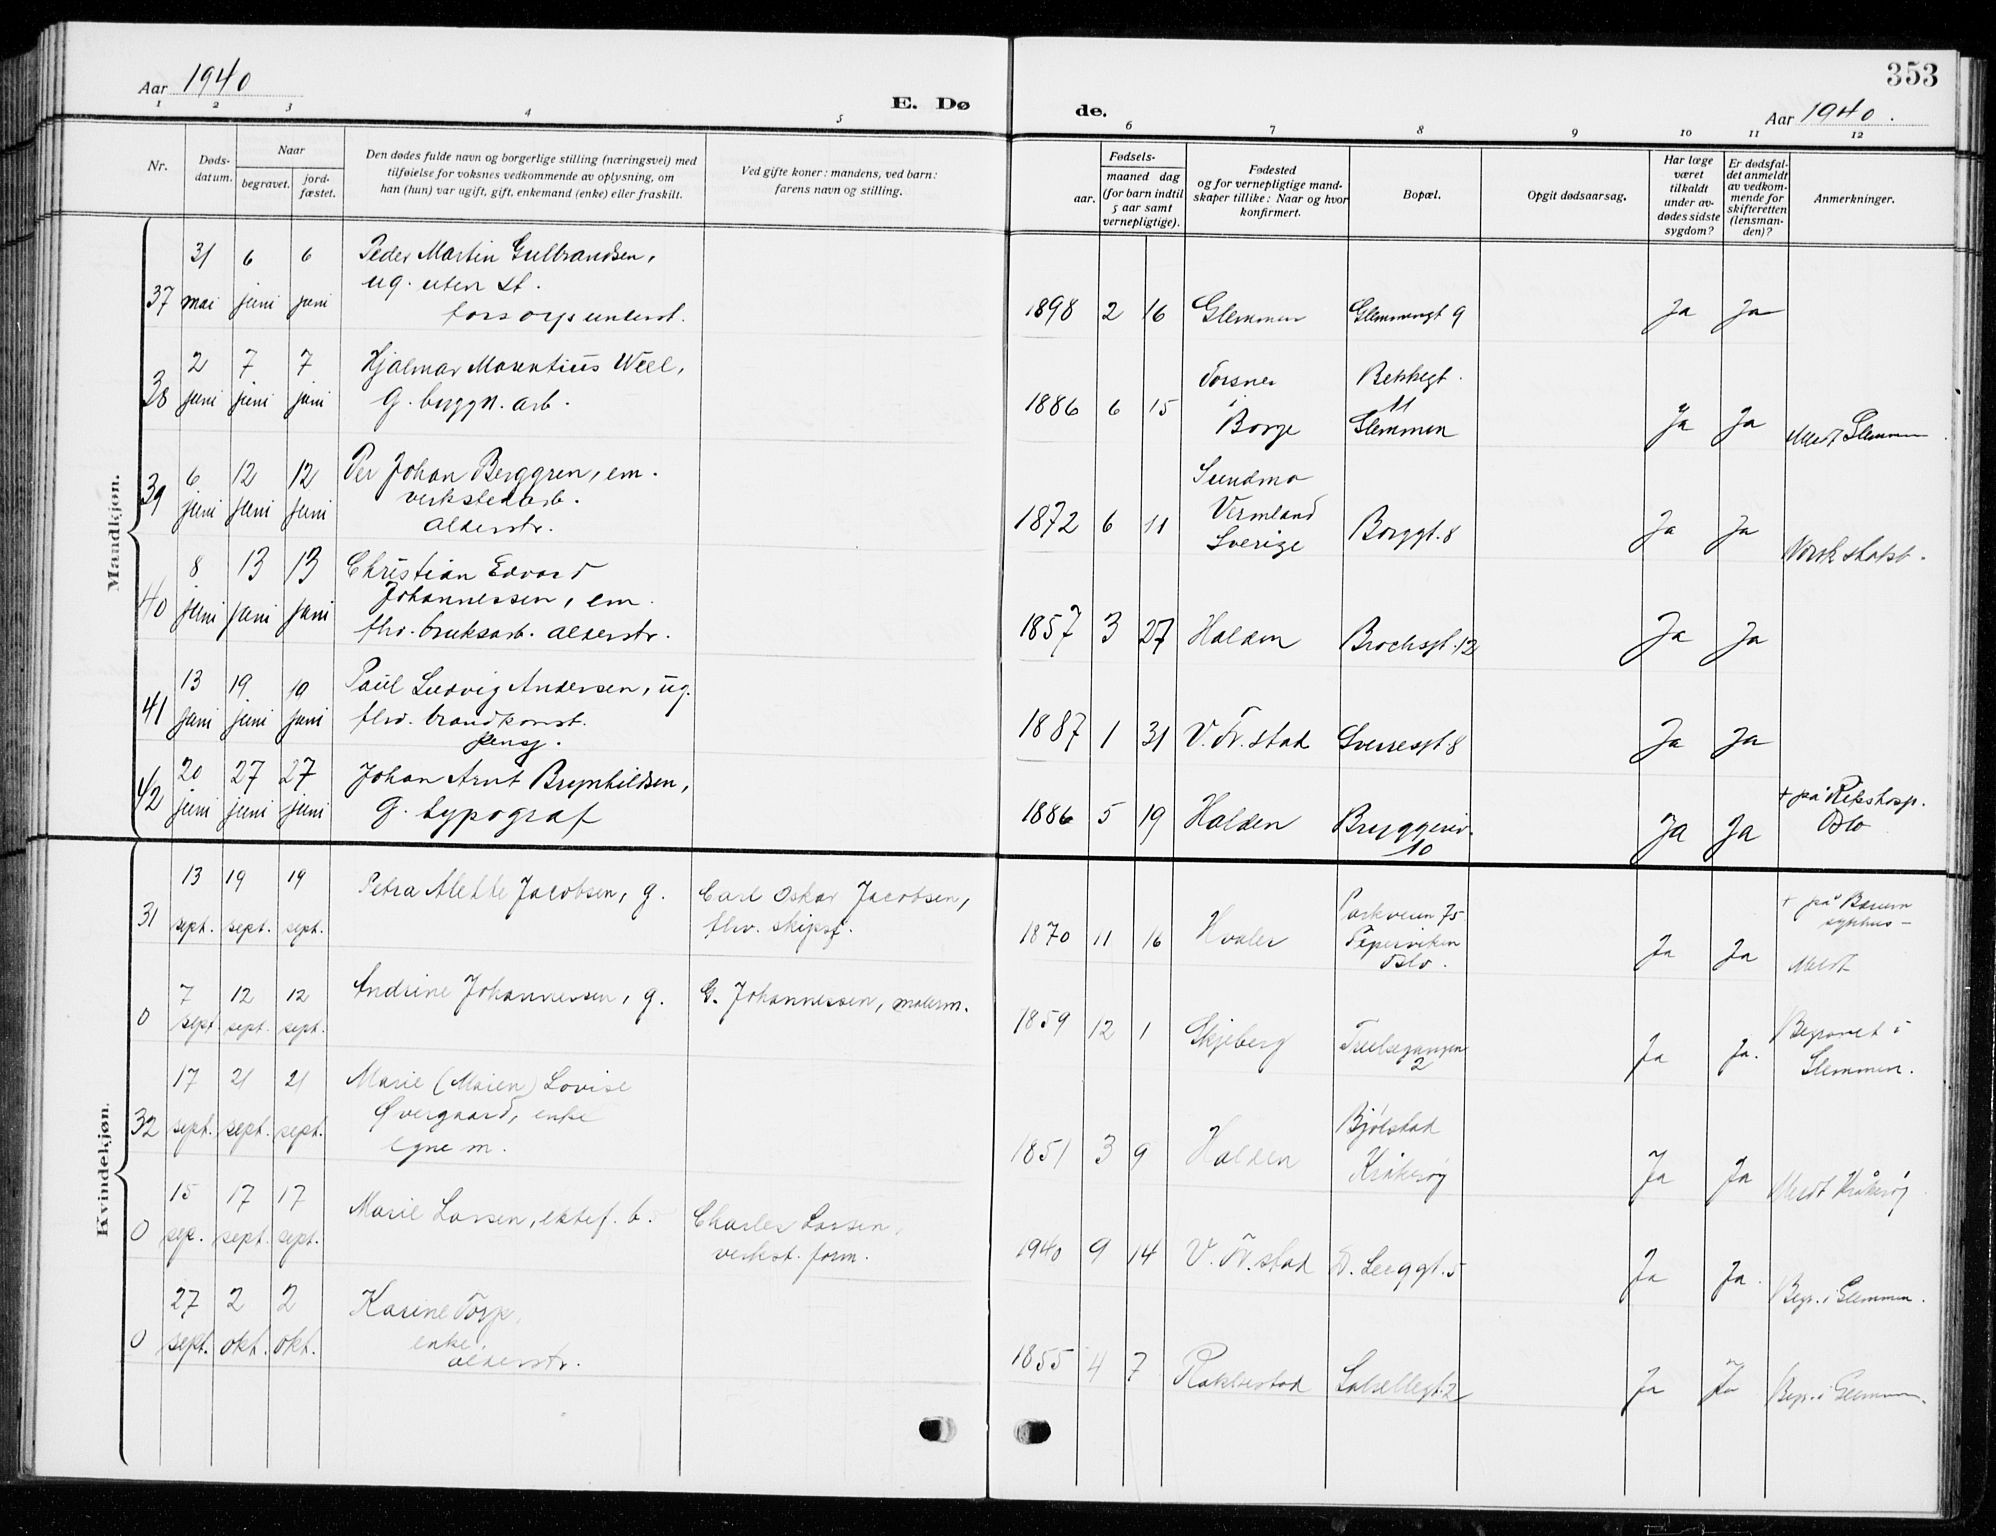 353
Aar 1940
E. Dø
de.
Aar 1940.
1 2 3 4 5 6 7 8 9 10 11 12
Nr.
Døds-
datum.
Naar
begravet.
jord-
fæstet.
Den dødes fulde navn og borgerlige stilling (næringsvei) med
tilføielse for voksnes vedkommende av oplysning, om
han (hun) var ugift, gift, enkemand (enke) eller fraskilt.
Ved gifte koner: mandens, ved barn:
farens navn og stilling.
Fødsels-
aar.
maaned dag
(for barn indtil
5 aar samt
vernepligtige).
Fødested
og for vernepligtige mand-
skaper tillike: Naar og hvor
konfirmert.
Bopæl.
Opgit dødsaarsag.
Har læge
været
tilkaldt
under av-
dødes sidste
sygdom?
Er dødsfal-
det anmeldt
av vedkom-
mende for
skifteretten
(lensman-
den)?
Anmerkninger.
Mandkjøn.
31 6 6 Peder Martin Gulbrandsen,
ug. uten st.
37 mai juni juni forsorgsunderst. 1898 2 16 Glemmen Glemmengt 9 Ja Ja
2 7 7 Hjalmar Mauentius Weel, Torsnes Bekkegt.
38 juni juni juni G. byggn. arb. 1886 6 15 i 11
Borge Glemmen Ja Ja Medt Glemmen.
6 12 12 Per Johan Berggren, em. Sundmo
39 juni juni juni verkstedarb. 1872 6 11 Vermland Borggt. 8 Ja Ja
alderstr. Sverige Norsk statsb.
8 13 13 Christian Edvard
40 juni juni juni Johannessen, em.
fhv. bruksarb. alderstr. 1857 3 27 Halden Brochsgt. 12 Ja Ja
13 19 19 Paul Ludvig Andersen, ug.
41 juni juni juni fhv. brandkonst. 1887 1 31 V. Fr.stad Sverresgt. 8 Ja Ja
pensj.
20 27 27 Johan Arnt Brynhildsen, + på Rikshosp.
42 juni juni juni G. typograf 1886 5 19 Halden Bryggeriv. Ja Ja Oslo
10
Kvindekjøn.
13 19 19 Petra Alette Jacobsen, g. Carl Oskar Jacobsen, Parkveien 75 + på Bærum
31 sept. sept. sept. fhv. skipsf. 1870 11 16 Hvaler Piperviken Ja Ja sykhus -
Oslo. Meldt
7 12 12 Andrine Johannessen, g. G. Johannessen, malerm.
0 sept. sept. sept. 1859 12 1 Skjeberg Trulsegangen Ja Ja. Begravet i
2 Glemmen.
17 21 21 Marie (Maien) Lovise
32 sept. sept. sept. Øvergaard, enke Bjølstad
egne m. 1851 3 9 Halden Kråkerøy Ja Ja Meldt Kråkerøy
15 17 17 Marie Larsen, ektef. b. Charles Larsen,
0 sep. sept. sept. verkst. form. 1940 9 14 V. Fr.stad Ja Ja Begr. i Glemmen.
27 2 2 Karine Torp,
0 sept. okt. okt. enke
alderstr. 1855 4 7 Ja Ja Begr. i Glemmen.